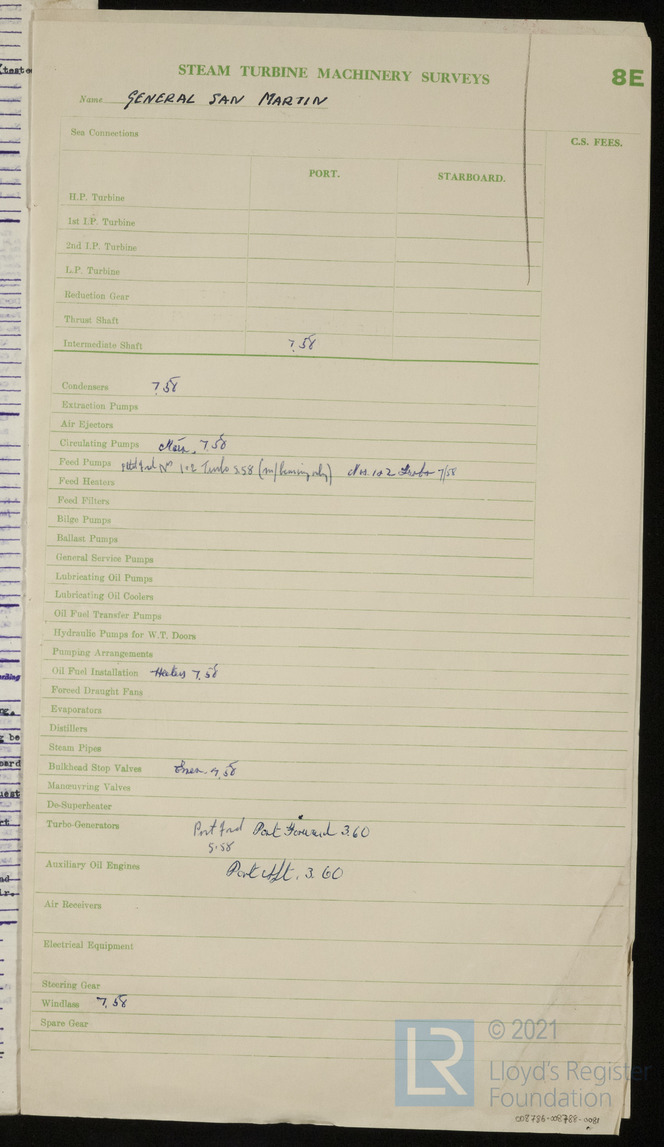 (teste
STEAM TURBINE MACHINERY SURVEYS 8E
Name GENERAL SAN MARTIN
Sea Connections
C.S. FEES.
PORT. STARBOARD.
H.P. Turbine
1st I.P. Turbine
2nd I.P. Turbine
L.P. Turbine
Reduction Gear
Thrust Shaft
Intermediate Shaft 7.58
Condensers 7.58
Extraction Pumps
Air Ejectors
Circulating Pumps Main. 7.58
Feed Pumps No 1 & 2 Turbo 5.58 Nos. 1 & 2 Turbo 7/58
Feed Heaters
Feed Filters
Bilge Pumps
Ballast Pumps
General Service Pumps
Lubricating Oil Pumps
Lubricating Oil Coolers
Oil Fuel Transfer Pumps
Hydraulic Pumps for W.T. Doors
Pumping Arrangements
Oil Fuel Installation Heaters 7.58
Forced Draught Fans
Evaporators
Distillers
Steam Pipes
Bulkhead Stop Valves
Manœuvring Valves
De-Superheater
Turbo-Generators Port fwd Port Forward 3.60
5.58
Auxiliary Oil Engines Port Aft. 3.60
Air Receivers
Electrical Equipment
Steering Gear
Windlass 7.58
Spare Gear
LR © 2021
Lloyd's Register
Foundation
008786-008788-0081